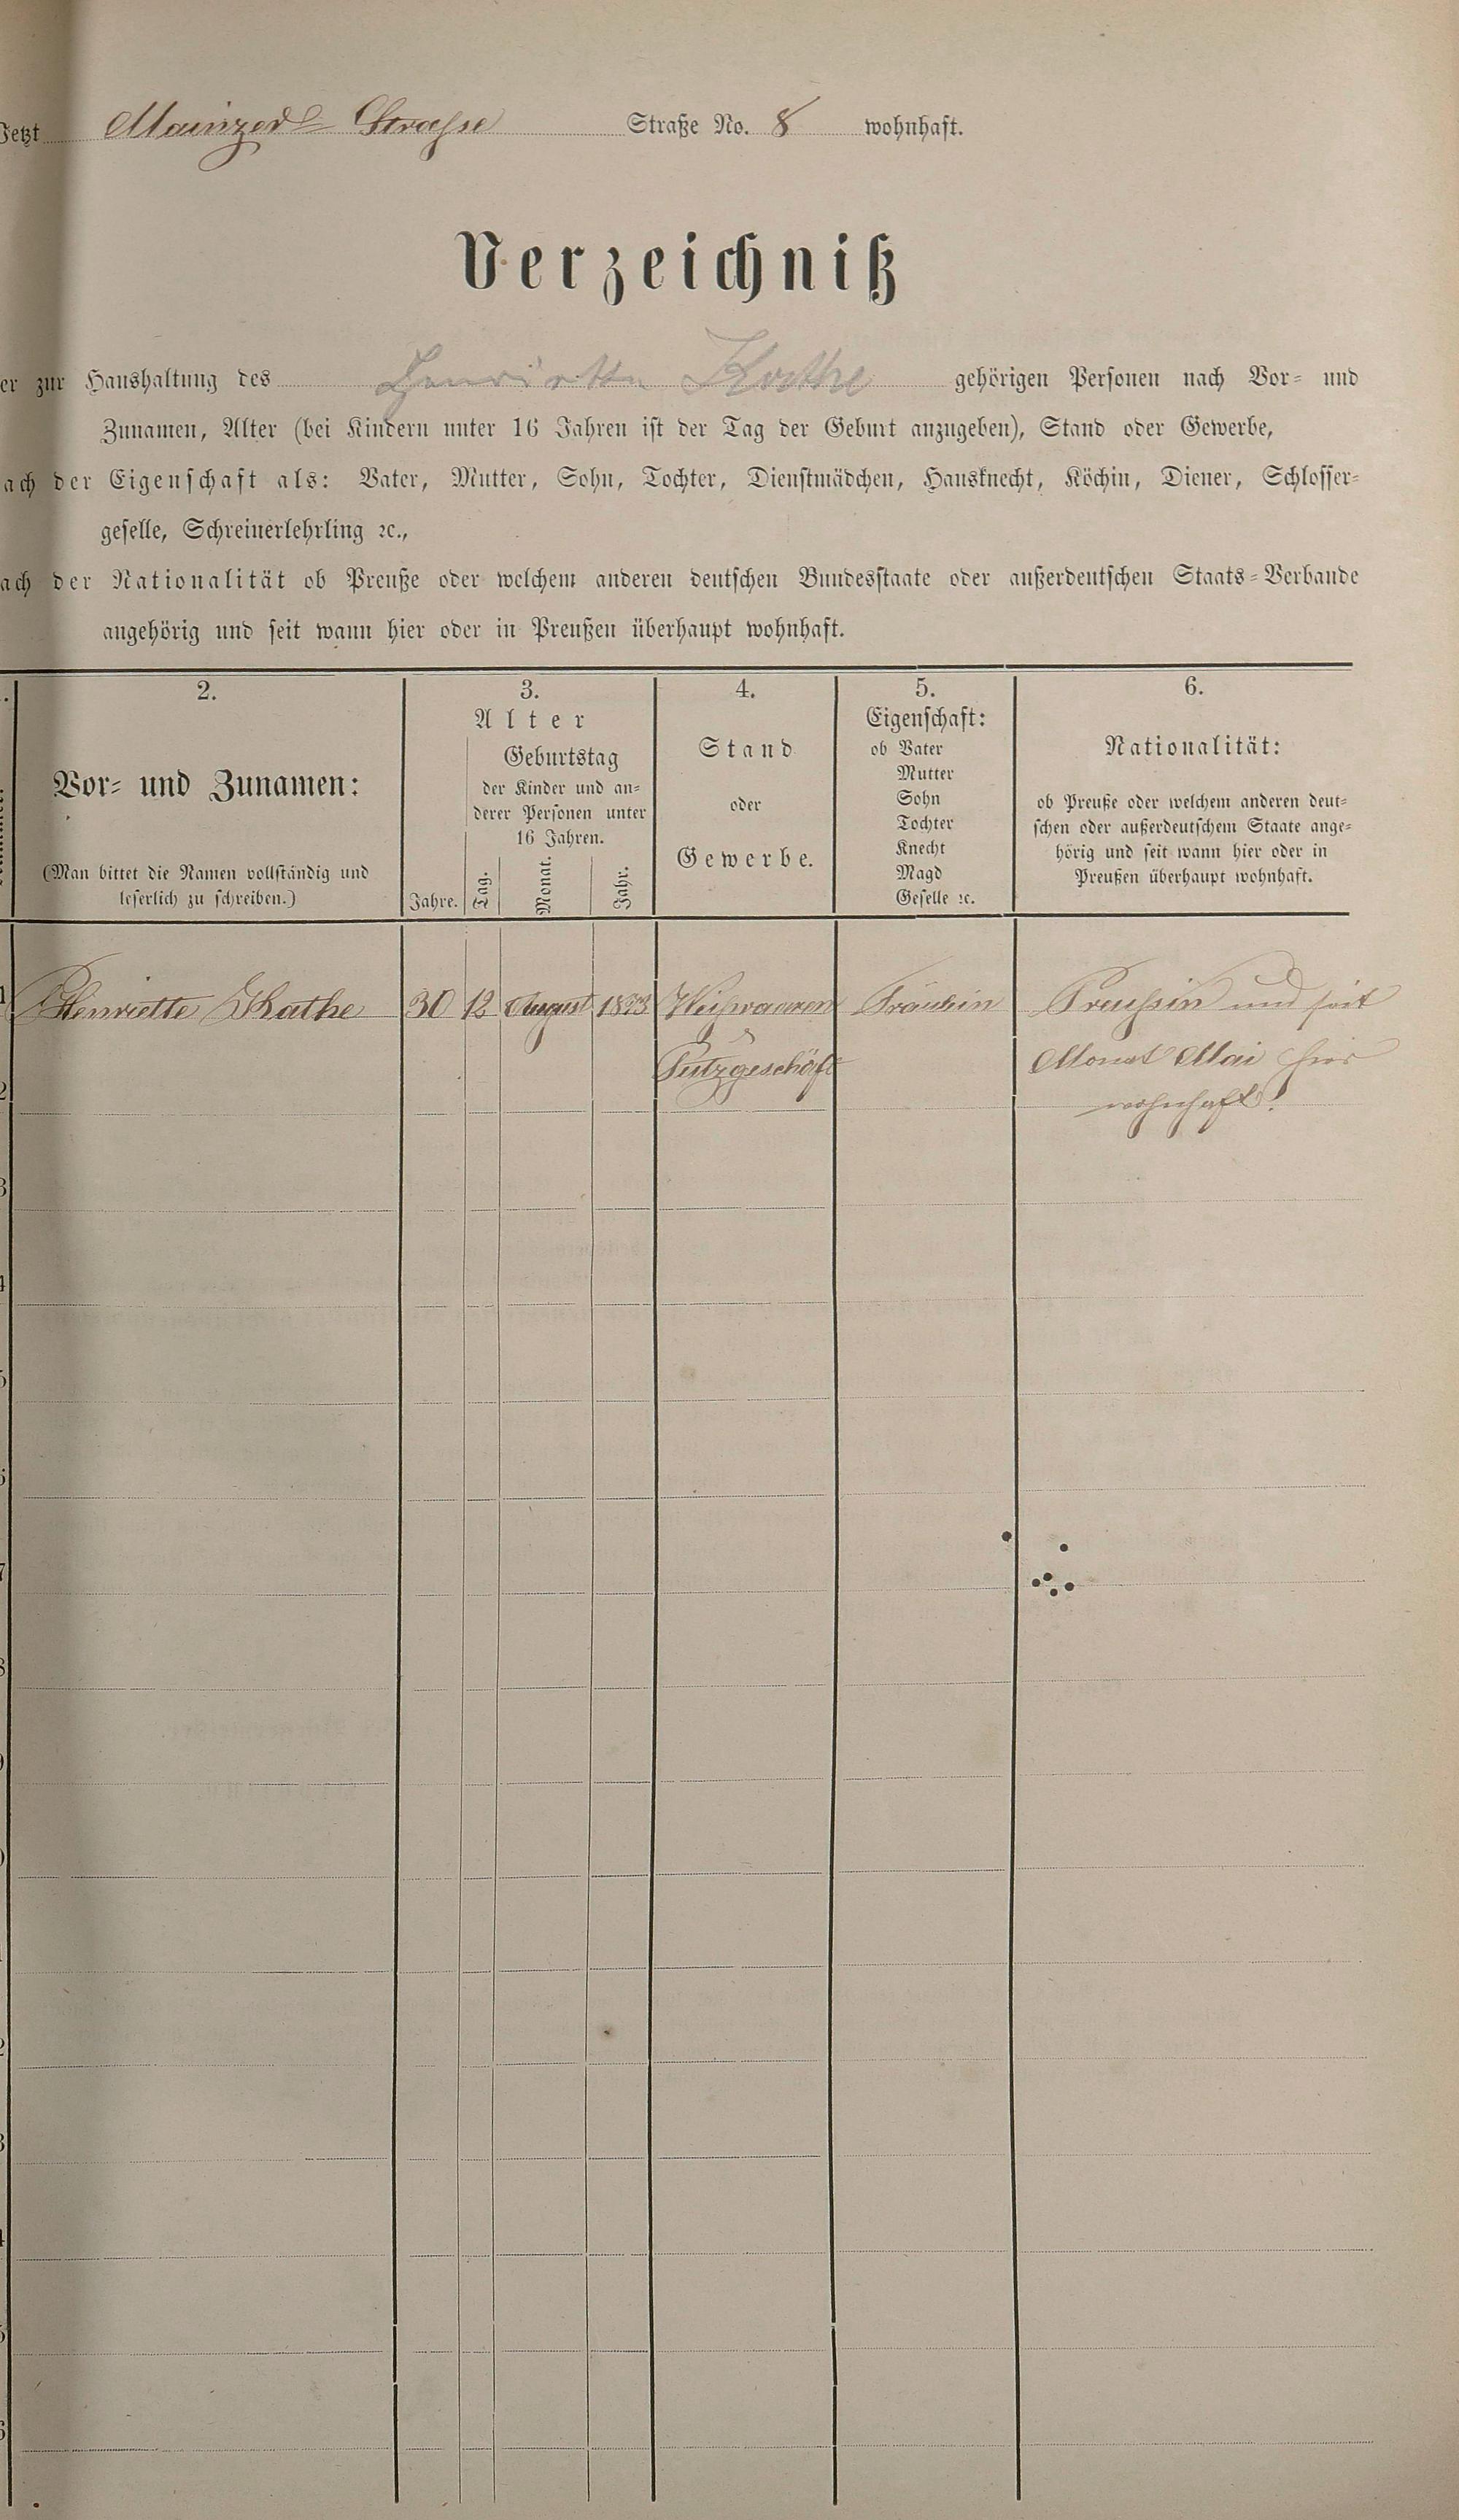 Jetzt Mainzer Strasse Straße No. 8 wohnhaft.
Verzeichniß
er zur Haushaltung des Henriette Kothe gehörigen Personen nach Vor- und
Zunamen, Alter (bei Kindern unter 16 Jahren ist der Tag der Geburt anzugeben), Stand oder Gewerbe,
ach der Eigenschaft als: Vater, Mutter, Sohn, Tochter, Dienstmädchen, Hausknecht, Köchin, Diener, Schlosser-
geselle, Schreinerlehrling ꝛc.,
ach der Nationalität ob Preuße oder welchem anderen deutschen Bundesstaate oder außerdeutschen Staats-Verbande
angehörig und seit wann hier oder in Preußen überhaupt wohnhaft.
2.
Vor- und Zunamen:
(Man bittet die Namen vollständig und
leserlich zu schreiben.)
3.
Alter
Geburtstag
der Kinder und an-
derer Personen unter
16 Jahren.
Jahre. Tag. Monat. Jahr.
4.
Stand
oder
Gewerbe.
5.
Eigenschaft:
ob Vater
Mutter
Sohn
Tochter
Knecht
Magd
Geselle ꝛc.
6.
Nationalität:
ob Preuße oder welchem anderen deut-
schen oder außerdeutschem Staate ange-
hörig und seit wann hier oder in
Preußen überhaupt wohnhaft.
1 Henriette 30 12 August 1873 Weißwaaren Fräulein Preußin und seit
Putzgeschäft Monat Mai hier
2 wohnhaft.
3
4
5
6
7
8
9
0
2
3
4
5
6